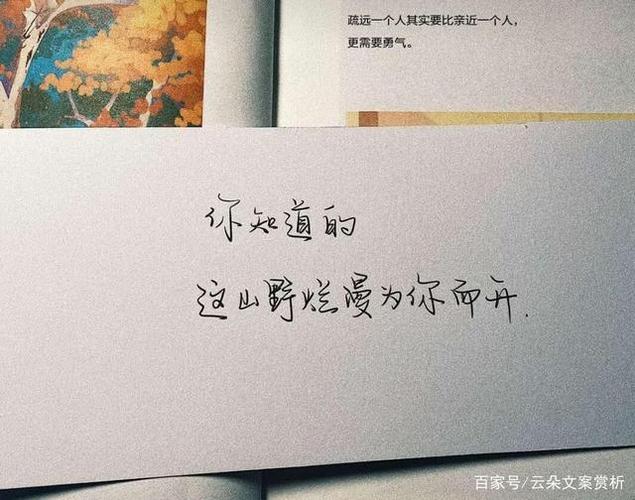 疏远一个人其实要比亲近一个人，
更需要勇气。
你知道的
这山野烂漫为你而开.
百家号/云朵文案赏析